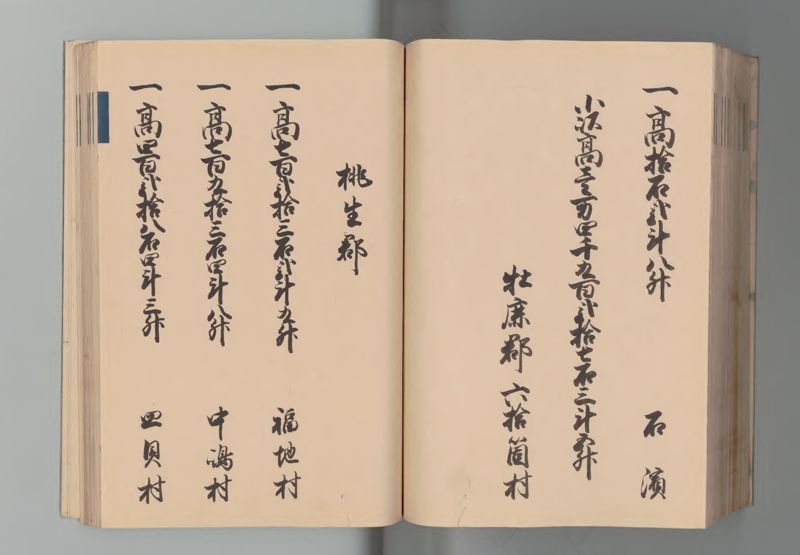 一高拾石弐斗八升 石濱
小以高壱万四千九百弐拾七石三斗五升
牡鹿郡 六拾箇村
桃生郡
一高七百弐拾三石弐斗九升 福地村
一高七百九拾三石四斗八升 中嶋村
一高四百弐拾八石四斗三升 皿貝村